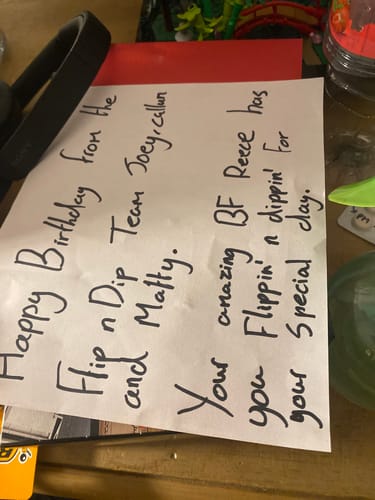 Happy Birthday from the
Flip n Dip Team Joey, callum
and Matty.
Your amazing BF Reece has
you Flippin' n dippin' for
your Special day.
SONY